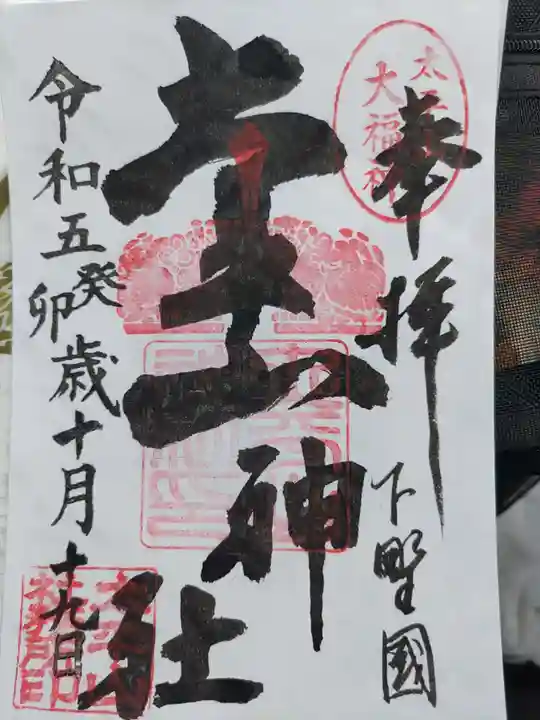 奉拝
下野國
太平山神社
令和五癸卯歳十月十九日
大福神